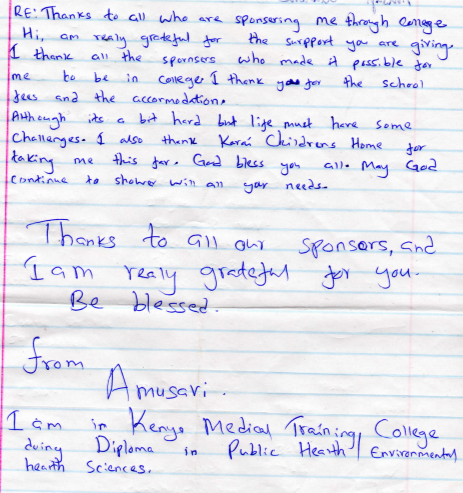 RE: Thanks to all who are sponsering me through college
Hi, am realy grateful for the surpport you are giving.
I thank all the spornsers who made it possible for
me to be in college. I thank you for the school
fees and the accormodation.
Although its a bit hard but life must have some
challenges. I also thank Karai Childrens Home for
taking me this far. God bless you all. May God
continue to shower will all your needs.
Thanks to all our sponsors, and
I am realy grateful for you.
Be blessed.
from
Amusavi.
I am in Kenya Medical Training College
doing Diploma in Public Health / Environmental
health Sciences.